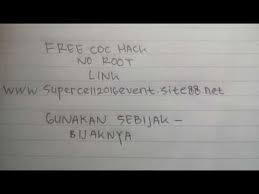 FREE COC HACK
NO ROOT
LINK
www.supercell2016event.site88.net
GUNAKAN SEBIJAK -
BIJAKNYA